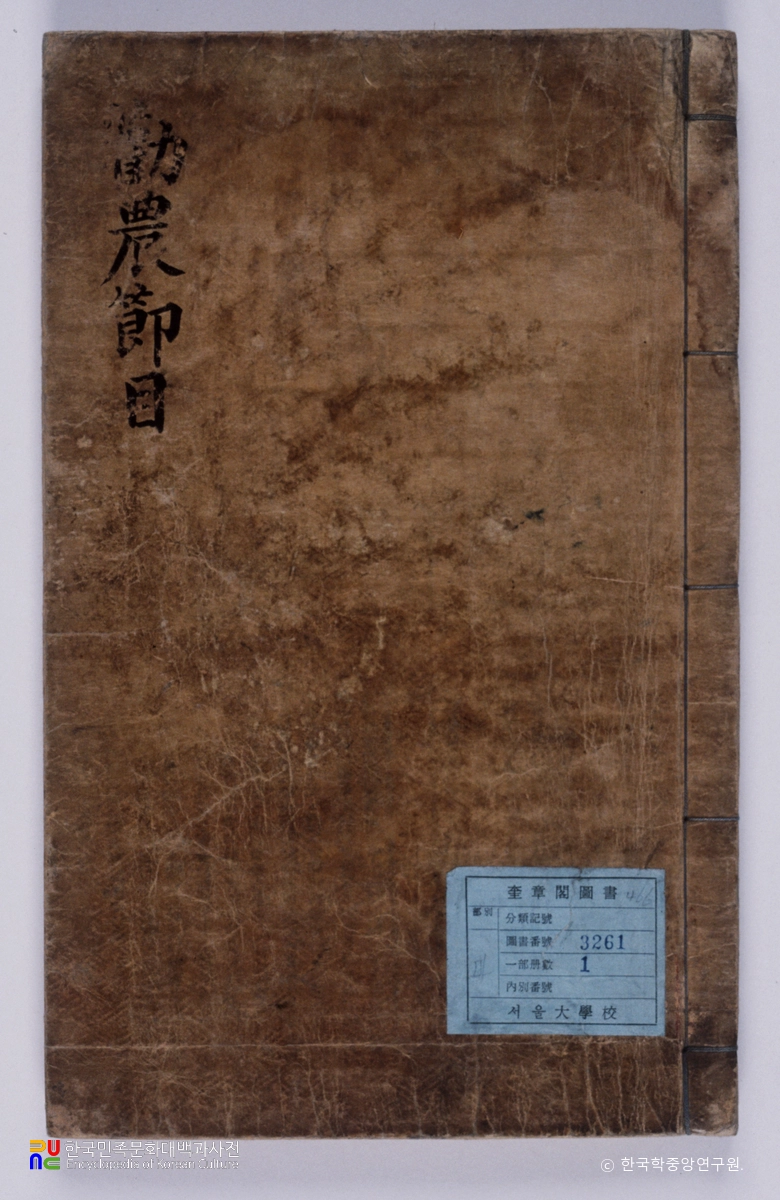 勸農節目
奎章閣圖書
部別
分類記號
圖書番號 3261
一部册數 1
內別番號
서울大學校
한국민족문화대백과사전
Encyclopedia of Korean Culture
© 한국학중앙연구원.